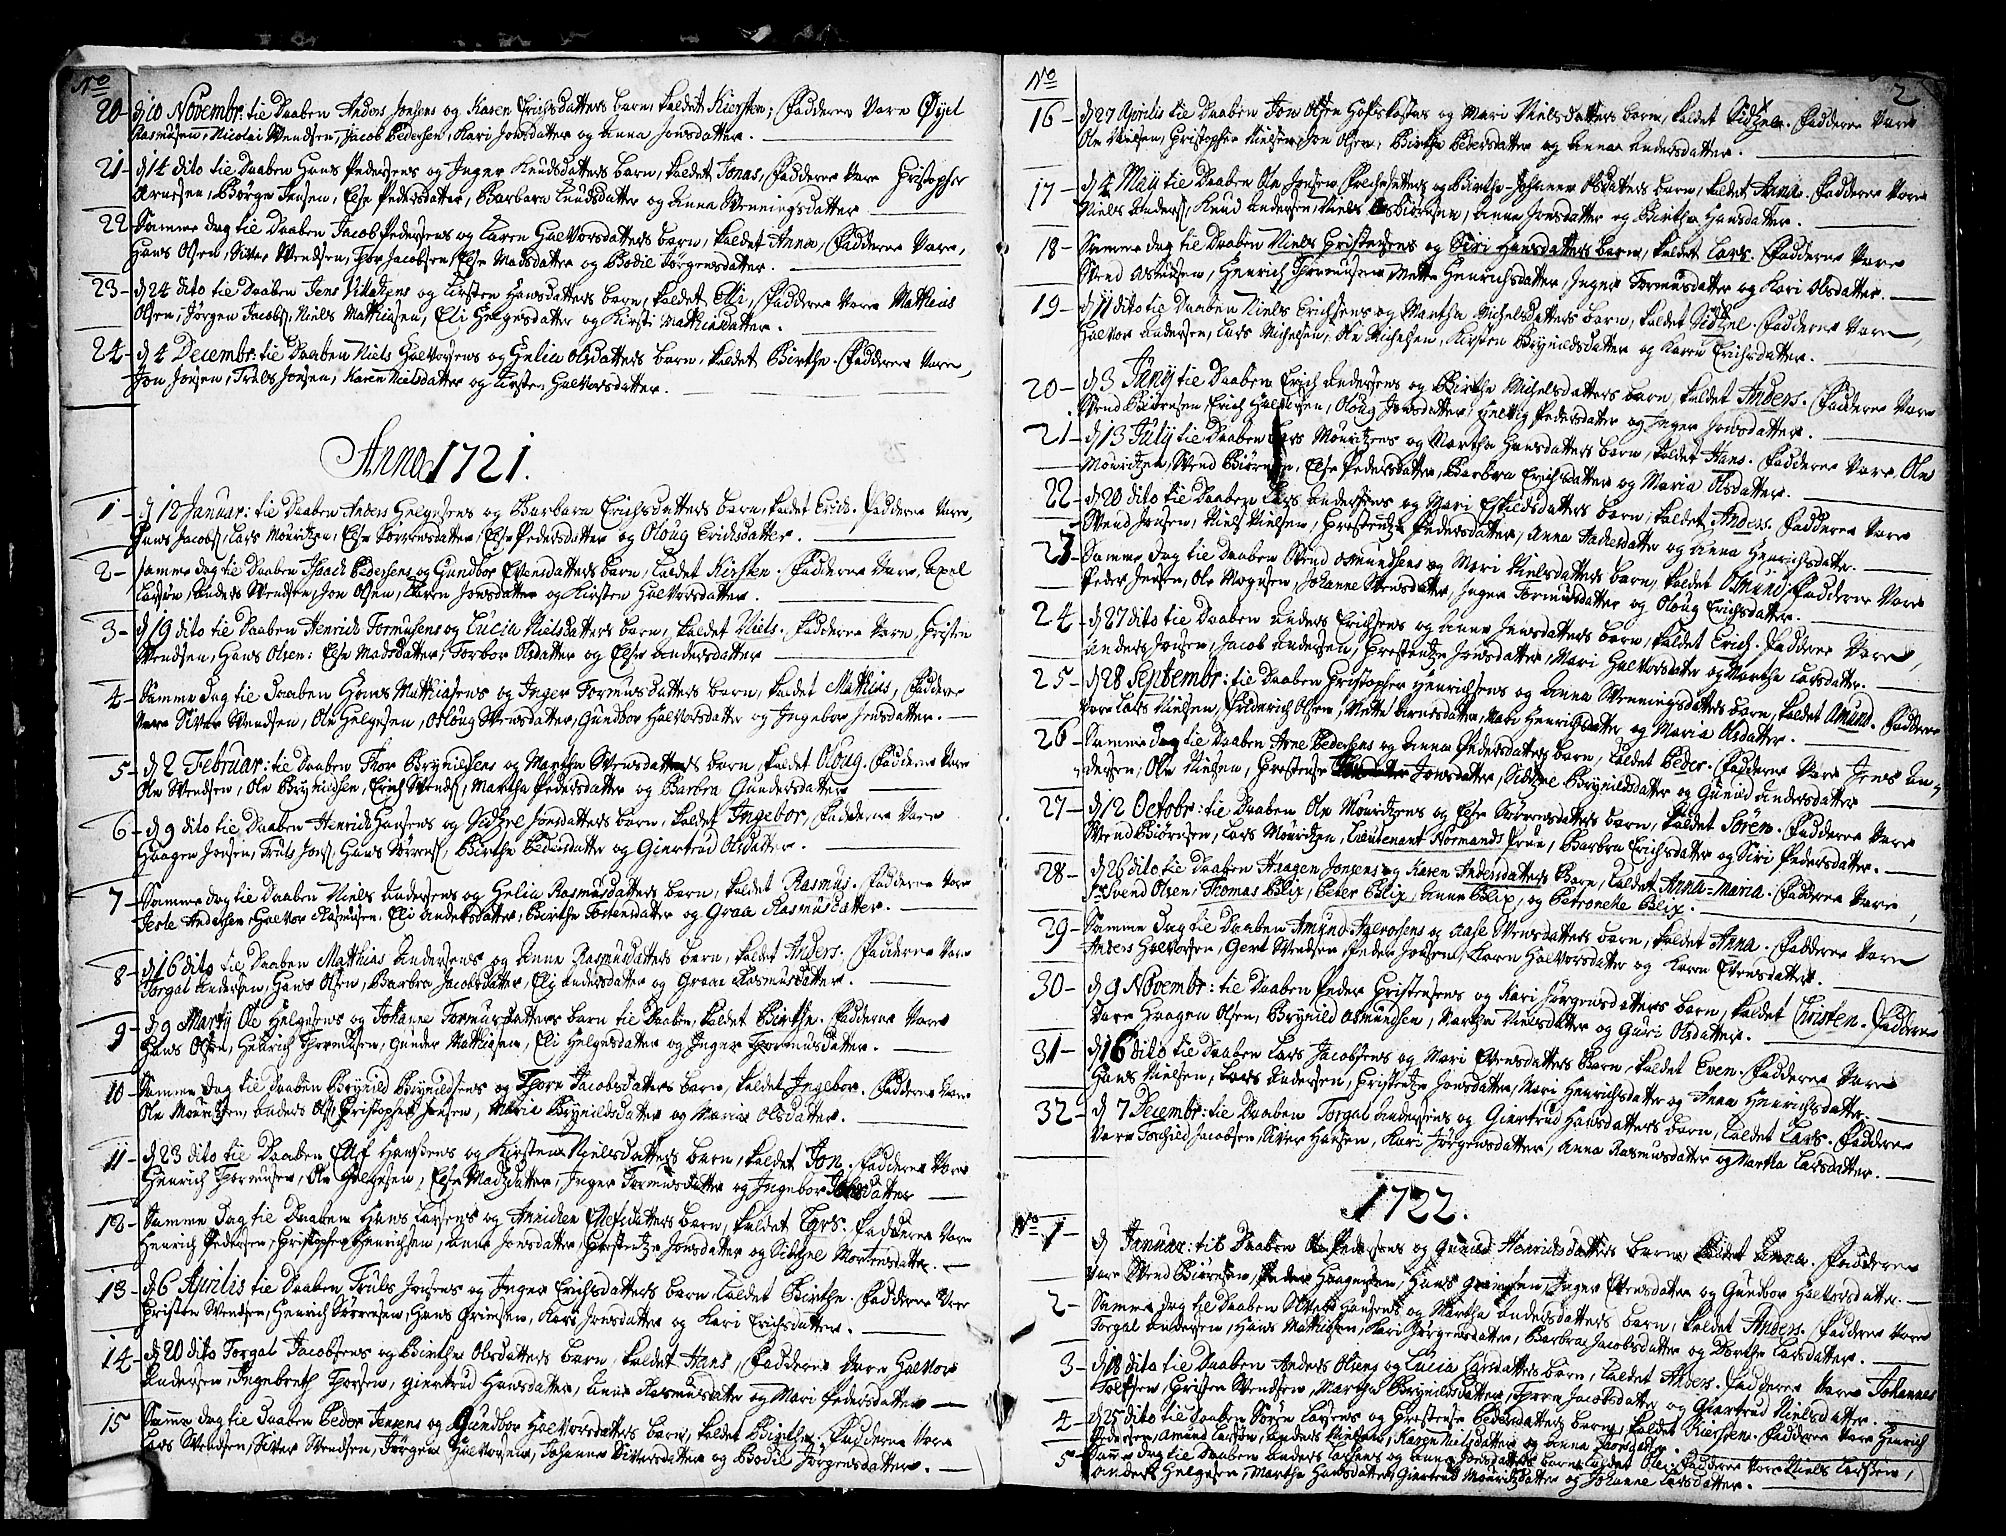 No
20 – d 10 Novembr: tie Daaben Anders Jensens og Karen Erichsdatters barn, kaldet Kiersten, Faddere Vare
Rasmusen, Nicolai Svendsen, Jacob Pedersen, Kari Jonsdatter og Anna Jonsdatter.
21 – d 14 dito tie Daaben Hans Pedersens og Inger Knudsdatters barn, kaldet Jonas, Faddere Vare Christopher
Arnesen, Børge Jensen, Else Pedersdatter, Barbara Knudsdatter og Anna Wenningsdatter
22 – Samme dag tie Daaben Jacob Pedersens og Karen Halvorsdatters barn, kaldet Anna, Faddere Vare,
Hans Olsen, Siver Svendsen, Thor Jacobsen, Else Madsdatter og Bodil Jørgensdatter.
23 – d 24 dito tie Daaben Jens og Kirsten Hansdatters barn, kaldet Elli, Faddere Vare Mathias
Olsen, Jørgen Jacobs, Niels Mathiasen, Eli Helgesdatter og Kirsti Mathisdatter.
24 – d 4 Decembr: tie Daaben Niels Halvorsens og Helia Olsdatters barn, kaldet Birthe. Faddere Vare,
Jon Jonsen, Truls Jonsen, Karen Nielsdatter og Kirsten Halvorsdatter.
Anno 1721.
1 – d 12 Januar: tie Daaben Anders Helgesens og Barbara Erichsdatters barn, kaldet Erich. Faddere Vare,
Hans Jacobs, Lars Mouritzen, Else Sørrensdatter, Else Pedersdatter og Oloug Erichsdatter.
2 – samme dag tie Daaben Isaach Pedersens og Gundbor Evensdatters barn, kaldet Kirsten. Faddere Vare, Axel
Larsen, Anders Svendsen, Jon Olsen, Karen Jonsdatter og Kirsten Halvorsdatter.
3 – d 19 dito tie Daaben Henrich Tormusens og Lucia Nielsdatters barn, kaldet Niels. Faddere Vare, Christen
Svendsen, Hans Olsen: Else Madsdatter, Torbor Olsdatter og Else Andersdatter
4 – Samme dag tie Daaben Hans Mathiasens og Inger Tormusdatters barn, kaldet Mathias, Faddere
Vare Siver Svendsen, Ole Helgesen, Osloug Svensdatter, Gundbor Halvorsdatter og Ingebor Jensdatter.
5 – d 2 Februar: tie Daaben Thor Brynildsens og Martha Svensdatters barn, kaldet Oloug. Faddere Vare
Ole Svendsen, Ole Brynildsen, Erich Svends, Martha Pedersdatter og Barbra Gundersdatter
6 – d 9 dito tie Daaben Henrich Hansens og Jonsdatters barn, kaldet Ingebor, Faddere Vare
Haagen Jonsen, Truls Jons, Hans Sørrens, Birthe Pedersdatter og Giertrud Olsdatter.
7 – Samme dag tie Daaben Niels Andersens og Helia Rasmusdatters barn, kaldet Rasmus. Faddere Vare
Andersen, Halvor Rasmusen, Eli Andersdatter, Birthe og Graa Rasmusdatter.
8 – d 16 dito tie Daaben Mathias Andersens og Anne Rasmusdatters barn, kaldet Anders. Faddere Vare
Torgal Andersen, Hans Olsen, Barbra Jacobsdatter, Eli Andersdatter og Graae Rasmusdatter.
9 – d 9 Marty Ole Helgesens og Johanne Tormusdatters barn tie Daaben, kaldet Birthe. Faddere Vare
Hans Olsen, Henrich Thormusen, Gunder Mathiasen, Eli Helgesdatter og Inger Thormusdatter.
10 – Samme dag tie Daaben Brynild Brynildsens og Thore Jacobsdatters barn, kaldet Ingebor. Faddere Vare
Ole Mouritzen, Anders Ols, Christopher Jensen, Maria Brynildsdatter og Maria Olsdatter.
11 – d 23 dito tie Daaben Ellef Hansens og Kirsten Nielsdatters barn, kaldet Jon. Faddere Vare
Henrich Thormusen, Ole Helgesen, Else Madzdatter, Inger Tormusdatter og Ingebor Jensdatter
12 – Samme dag tie Daaben Hans Larsens og Annichen Ellefsdatters barn, kaldet Lars. Faddere Vare
Henrich Pedersen, Christopher Henrichsen, Anne Jonsdatter, Chrestentze Jonsdatter og Sidtzel Mortensdatter.
13 – d 6 Aprilis tie Daaben Truls Jonsens og Inger Erichsdatters barn kaldet Birthe. Faddere Vare
Christen Svendsen, Henrich Sørrensen, Hans Grimsen, Kari Jonsdatter og Kari Erichsdatter.
14 – d 20 dito Torgal Jacobsens og Birthe Olsdatters barn, kaldet Hans, Faddere Vare Halvor
Andersen, Ingebreth Thorsen, Giertrud Hansdatter, Anne Rasmusdatter og Mari Pedersdatter
15 – Samme dag tie Daaben Peder Jensens og Gundbor Halvorsdatters barn, kaldet Birthe. Faddere Vare
Lars Svendsen, Siver Svendsen, Jørgen Halvorsen, Johanne Siversdatter og Bodil Jørgensdatter.
No 2
16 – d 27 Aprilis tie Daaben Jon Olsen og Mari Nielsdatters barn, kaldet Sidtzel. Faddere Vare
Ole Nielsen, Christopher Nielsen, Jon Olsen, Birthe Pedersdatter og Anna Andersdatter.
17 – d 4 May tie Daaben Ole Jonsen og Birthe-Johanne Olsdatters barn, kaldet Anna. Faddere Vare
Niels Anders, Knud Andersen, Niels Asbiørnsen, Anne Jonsdatter og Birthe Hansdatter.
18 – Samme dag tie Daaben Niels Christensens og Siri Hansdatters barn, kaldet Lars. Faddere Vare
Svend Osmundsen, Henrich Thormusen, Mette Henrichsdatter, Inger Tormusdatter og Kari Olsdatter.
19 – d 11 dito tie Daaben Niels Erichsens og Martha Michelsdatters barn, kaldet Sidtzel. Faddere Vare,
Halvor Andersen, Lars Michelsen, Ole Michelsen, Kirsten Brynildsdatter og Karen Erichsdatter.
20 – d 3 Juny tie Daaben Erich Andersens og Birthe Michelsdatters barn, kaldet Anders. Faddere Vare
Svend Biørnsen, Erich Halvorsen, Oloug Jonsdatter, Helvig Pedersdatter og Inger Jonsdatter.
21 – d 13 July tie Daaben Lars Mouritzens og Martha Hansdatters barn, kaldet Hans. Faddere Vare, Ole
Mouritzen, Svend Biørnsen, Else Pedersdatter, Barbra Erichsdatter og Maria Olsdatter.
22 – d 20 dito tie Daaben Lars Andersens og Mari Eskildsdatters barn, kaldet Anders. Faddere Vare
Svend Jonsen, Niels Nielsen, Chrestentze Pedersdatter, Anna og Anna Henrichsdatter.
23 – Samme dag tie Daaben Svend Osmundsens og Mari Nielsdatters barn, kaldet Osmund, Faddere Vare
Peder Jensen, Ole Mogensen, Johanne Svensdatter, Inger Tormusdatter og Oloug Erichsdatter.
24 – d 27 dito tie Daaben Anders Erichsens og Anne Jensdatters barn, kaldet Erich. Faddere Vare,
Anders Jonsen, Jacob Andersen, Chrestentze Jonsdatter, Mari Halvorsdatter og Martha Larsdatter.
25 – d 28 Septembr: tie Daaben Christopher Henrichsens og Anna Wenningsdatters barn, kaldet Amund. Faddere
Vare Lars Nielsen, Friderich Olsen, Mette Arnesdatter, Mari Henrichsdatter og Maria Olsdatter.
26 – Samme dag tie Daaben Arne Pedersens og Anna Pedersdatters barn, kaldet Peder. Faddere Vare Jens An-
dersen, Ole Nielsen, Chrestense Jonsdatter, Sidtzele Brynildsdatter og Gunild Andersdatter
27 – d 12 Octobr: tie Daaben Ole Mouritzens og Else Sørrensdatters barn, kaldet Søren. Faddere Vare
Svend Biørnsen, Lars Mouritzen, Lieutenant Normands Frue, Barbra Erichsdatter og Siri Pedersdatter.
28 – d 26 dito tie Daaben Haagen Jonsens og Karen Andersdatters barn, kaldet Anna-Maria. Faddere Vare,
Sr Svend Olsen, Thomas Blix, Peter Blix, Anne Blix, og Petronelle Blix.
29 – Samme dag tie Daaben Amund og Aase Svensdatters barn, kaldet Anna. Faddere Vare
Anders Halvorsen, Gert Svendsen, Peder Jonsen, Karen Halvorsdatter og Karen Evensdatter.
30 – d 9 Novembr: tie Daaben Peder Christensens og Kari Jørgensdatters barn, kaldet Christen. Faddere
Vare Haagen Olsen, Brynild Osmundsen, Martha Nielsdatter og Guri Olsdatter.
31 – d 16 dito tie Daaben Lars Jacobsens og Mari Evensdatters barn, kaldet Even. Faddere Vare
Hans Nielsen, Lars Andersen, Christentze Jonsdatter, Mari Henrichsdatter og Anna Henrichsdatter.
32 – d 7 Decembr: tie Daaben Torgal Andersens og Giertrud Hansdatters barn, kaldet Lars. Faddere
Vare Torchild Jacobsen, Siver Hansen, Kari Jørgensdatter, Anna Rasmusdatter og Martha Larsdatter.
1722.
No 1 d Januar: tie Daaben Ole Pedersens og Gunild Henrichsdatters barn, kaldet Anna. Faddere
Vare Svend Biørnsen, Peder Haagensen, Hans Grimsen, Inger Evensdatter og Gundbor Halvorsdatter.
2 – Samme dag tie Daaben Siver Hansens og Martha Andersdatters barn, kaldet Anders. Faddere Vare
Torgal Andersen, Hans Mathiasen, Kari Jørgensdatter, Barbra Jacobsdatter og Dorthe Larsdatter.
3 – d 18 dito tie Daaben Anders Olsens og Lucia Larsdatters barn, kaldet Anders. Faddere Vare Johannes
Tolfsen, Christen Svendsen, Martha Brynildsdatter, Thore Jacobsdatter og Giertrud Nielsdatter.
4 – d 25 dito tie Daaben Søren Larsens og Chrestense Pedersdatters barn, kaldet Kiersten. Faddere Vare Henrich
Pedersen, Amund Larsen, Anders Nielsen, Karen Nielsdatter og Anna
5 – Samme dag tie Daaben Anders Larsens og Anna Jonsdatters barn kaldet Ole. Faddere Vare Niels Larssen,
Anders Helgesen, Martha Hansdatter, Giertrud Mouritzdatter og Johanne Larsdatter.